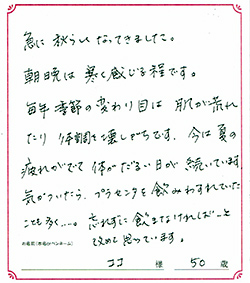 急に秋らしくなってきましたね。
朝晩は寒く感じる程です。
毎年季節の変わり目は肌が荒れ
たり体調を壊しがちです。今は夏の
疲れがでて体がだるい日が続いています。
気がついたら、プラセンタを飲みわすれていた
ことも多く…。忘れずに飲まなければ…と
改めて思っています。
お名前(本名orペンネーム) ココ 様 50歳